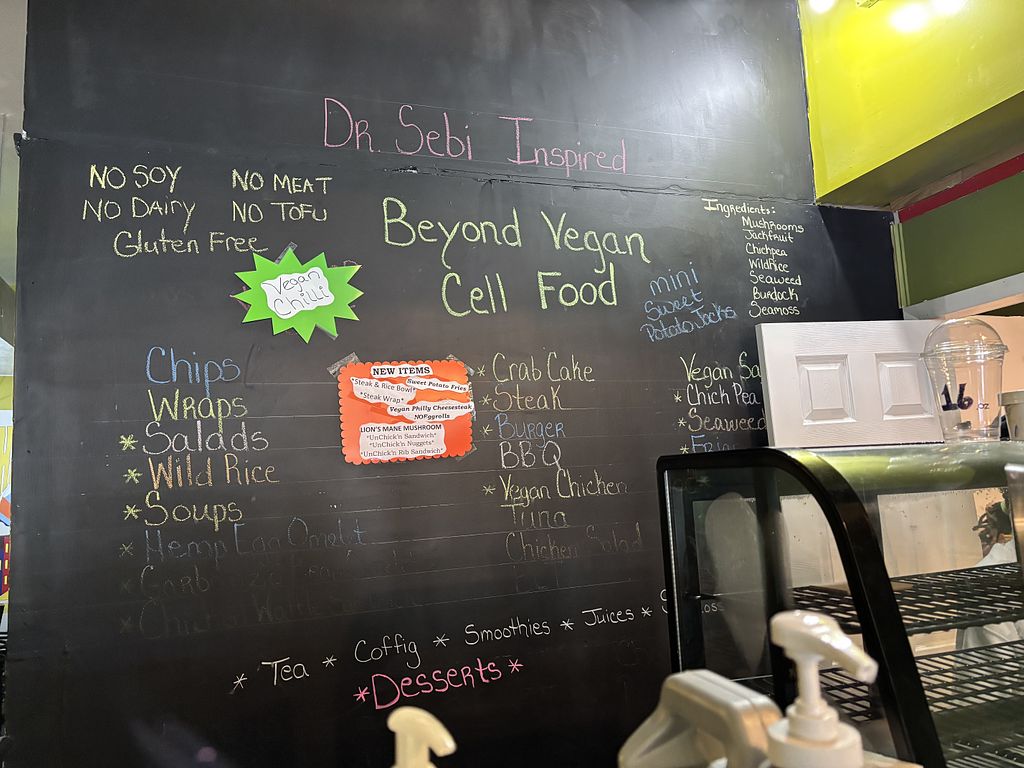 Dr. Sebi Inspired
No Soy
No Meat
No Dairy
No Tofu
Gluten Free
Beyond Vegan
Cell Food
Vegan
Chilli
mini
Sweet
Potato Jacks
Ingredients:
Mushrooms
Jackfruit
Chickpea
Wild Rice
Seaweed
Burdock
Seamoss
Chips
Wraps
* Salads
* Wild Rice
* Soups
* Hemp Egg Omelet
NEW ITEMS
*Steak & Rice Bowl*
Sweet Potato Fries
*Steak Wrap*
Vegan Philly Cheesesteak
NOEggrolls
LION'S MANE MUSHROOM
*UnChick'n Sandwich*
*UnChick'n Nuggets*
*UnChick'n Rib Sandwich*
* Crab Cake
* Steak
* Burger
BBQ
* Vegan Chicken
Tuna
Chicken Salad
Vegan
* Chick Pea
* Seaweed
* Tea * Coffig * Smoothies * Juices *
*Desserts*
16 oz